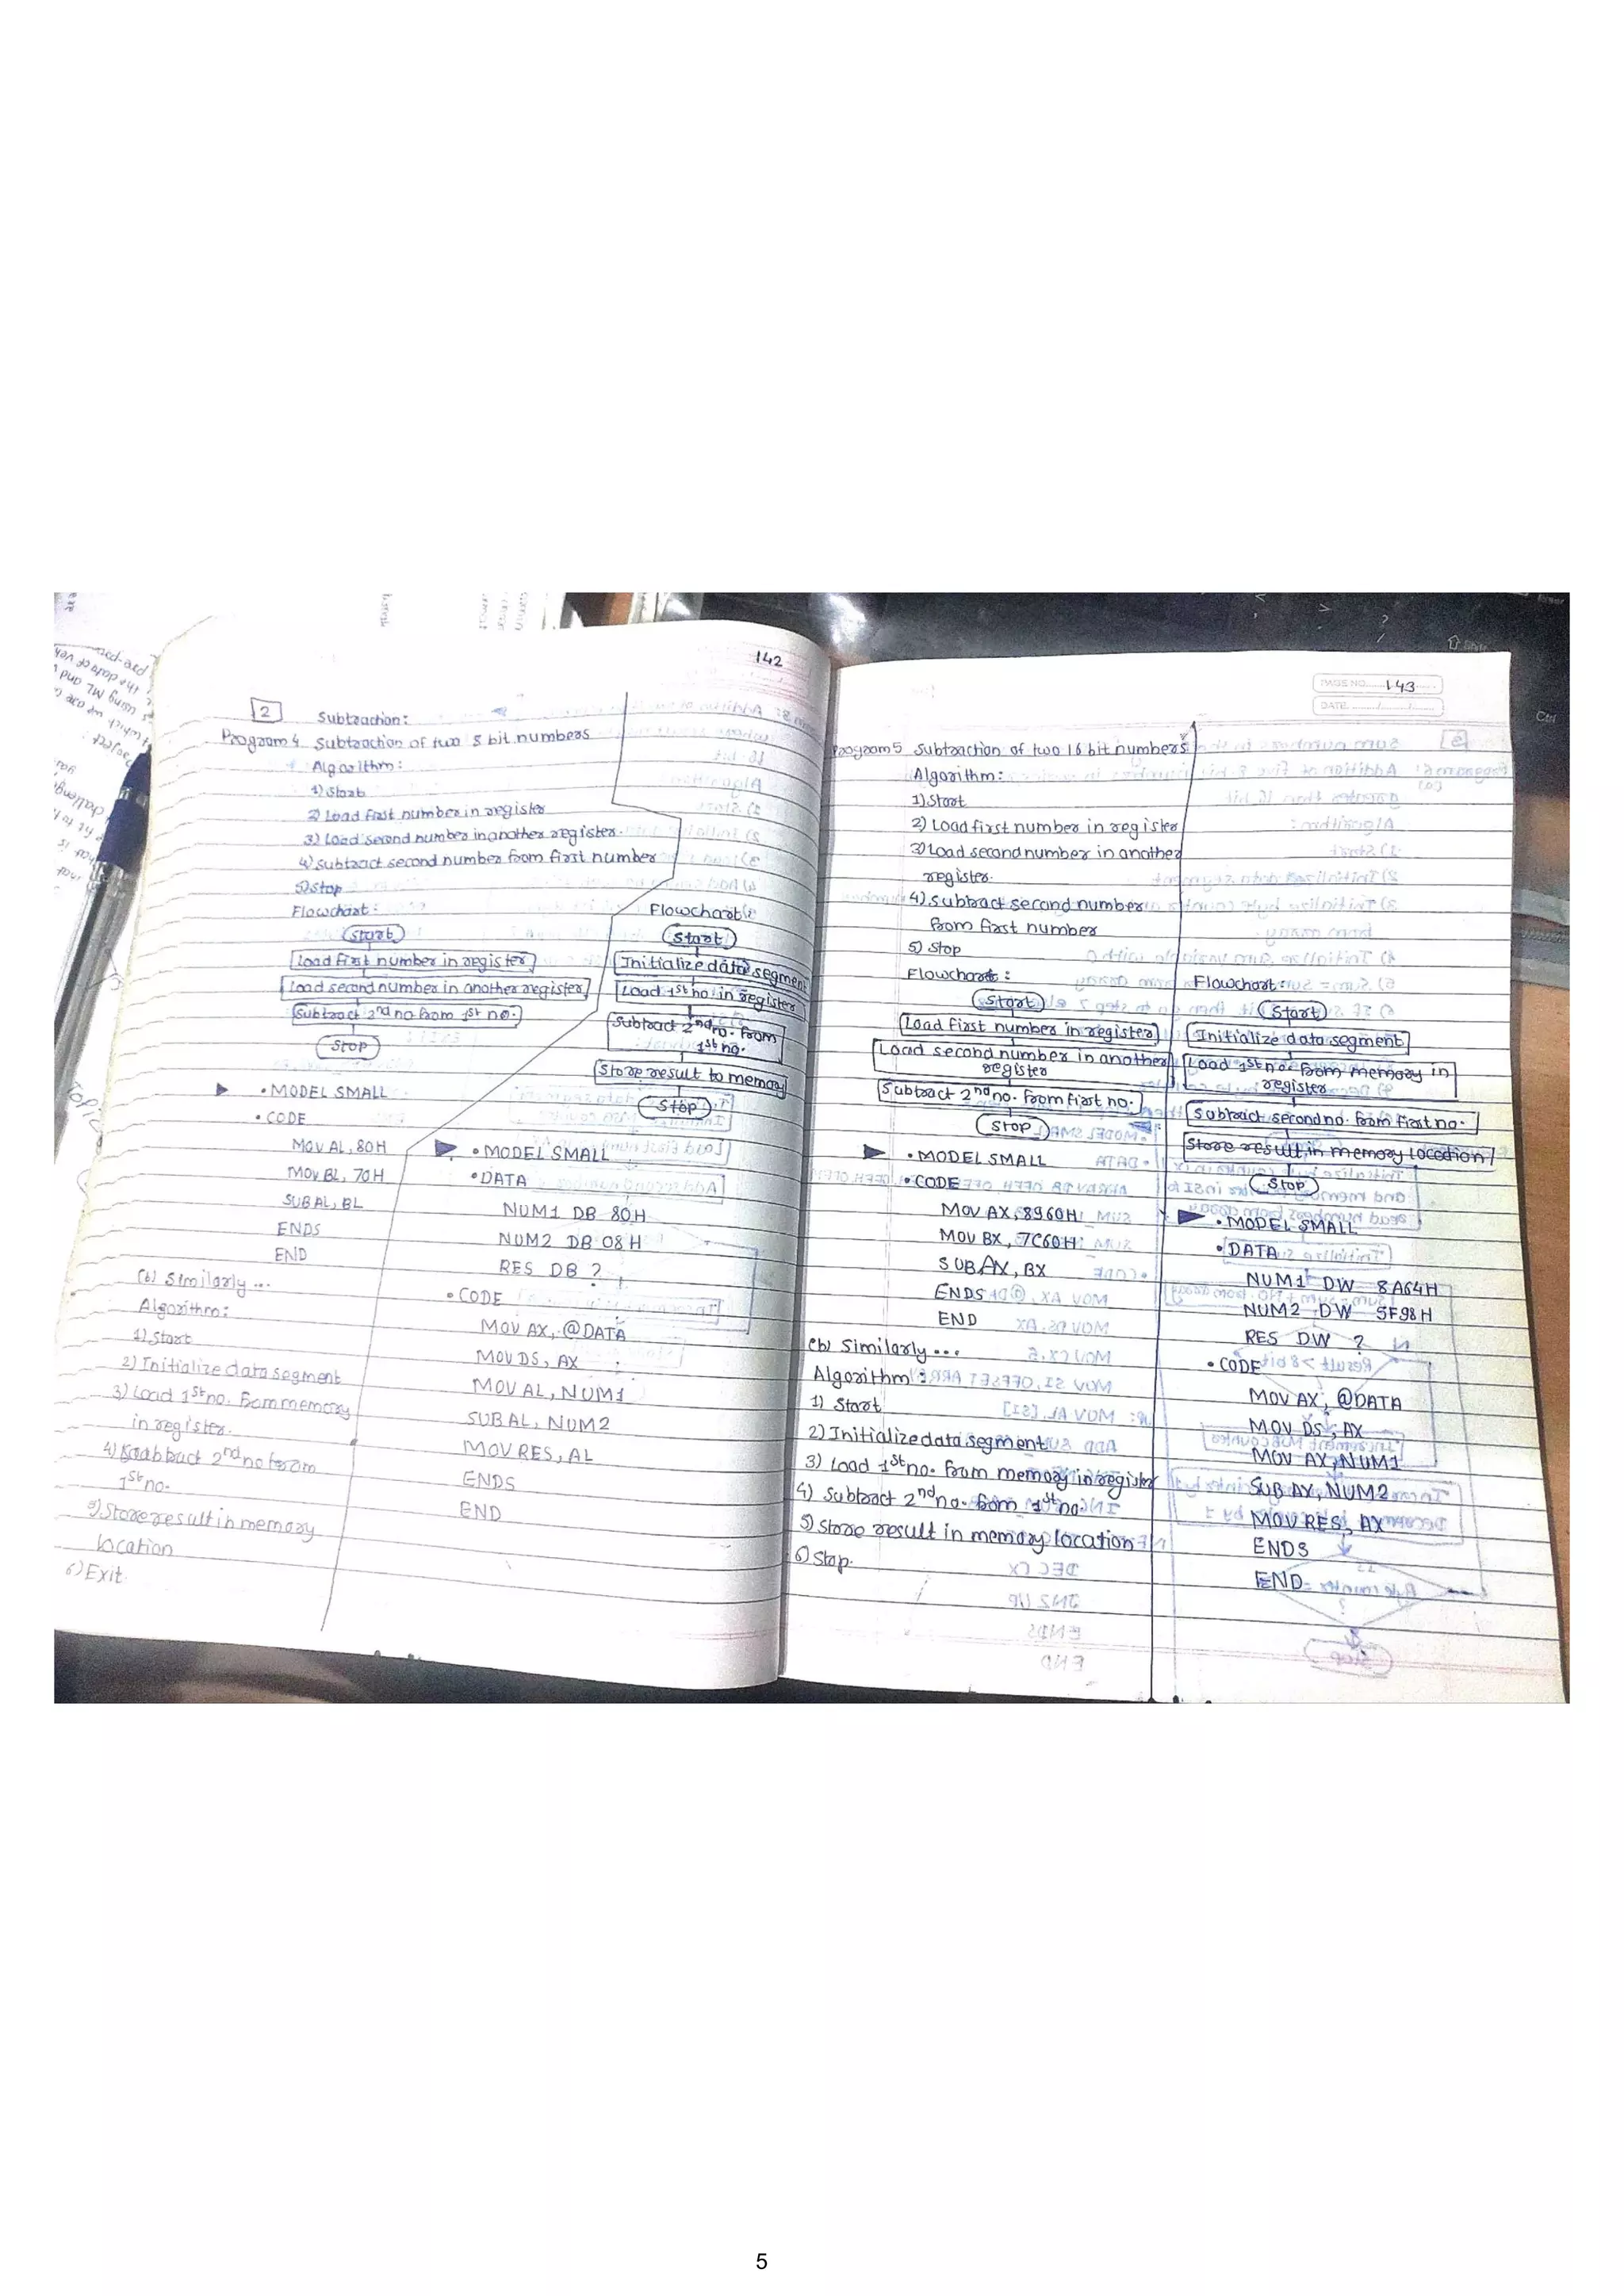 142
2 Subtraction:
Program 4 Subtraction of two 8 bit numbers
Algorithm:
1) Start
2) Load first number in register
3) Load second number in another register.
4) Subtract second number from first number
5) Stop
Flowchart:
Start
Load first number in register
Load second number in another register
Subtract 2nd no from 1st no.
Stop
.MODEL SMALL
.CODE
MOV AL, 80H
MOV BL, 70H
SUB AL, BL
ENDS
END
(b) Similarly ...
Algorithm:
1) Start
2) Initialize data segment
3) Load 1st no. from memory
in register.
4) Subtract 2nd no from
1st no.
5) Store result in memory
location
6) Exit
Flowchart:
Start
Initialize data segment
Load 1st no in register
Subtract 2nd no. from
1st no.
Store result to memory
Stop
.MODEL SMALL
.DATA
NUM1 DB 80H
NUM2 DB 08H
RES DB ?
.CODE
MOV AX, @DATA
MOV DS, AX
MOV AL, NUM1
SUB AL, NUM2
MOV RES, AL
ENDS
END
PAGE NO. 143
DATE
Program 5 Subtraction of two 16 bit numbers
Algorithm:
1) Start
2) Load first number in register
3) Load second number in another
register.
4) Subtract second number
from first number
5) Stop
Flowchart:
Start
Load first number in register
Load second number in another
register
Subtract 2nd no. from first no.
Stop
.MODEL SMALL
.CODE
MOV AX, 8960H
MOV BX, 7C60H
SUB AX, BX
ENDS
END
(b) Similarly ...
Algorithm:
1) Start
2) Initialize data segment
3) Load 1st no. from memory in register
4) Subtract 2nd no. from 1st no.
5) Store result in memory location
6) Stop.
Flowchart:
Start
Initialize data segment
Load 1st no. from memory in
register
Subtract second no. from first no.
Store result in memory location
Stop
.MODEL SMALL
.DATA
NUM1 DW 8A64H
NUM2 DW 5F98H
RES DW ?
.CODE
MOV AX, @DATA
MOV DS, AX
MOV AX, NUM1
SUB AX, NUM2
MOV RES, AX
ENDS
END
5